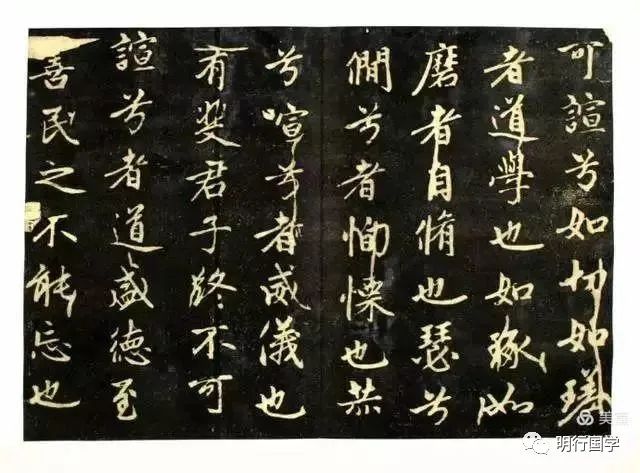 可諠兮如切如瑳
者道學也如琢如
磨者自脩也瑟兮
僩兮者恂慄也赫
兮喧兮者威儀也
有斐君子終不可
諠兮者道盛德至
善民之不能忘也
美篇
明行国学